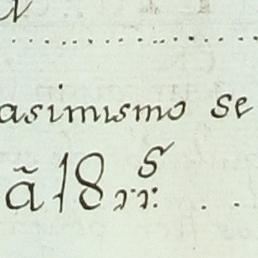 asimismo se
ã 18 rrs